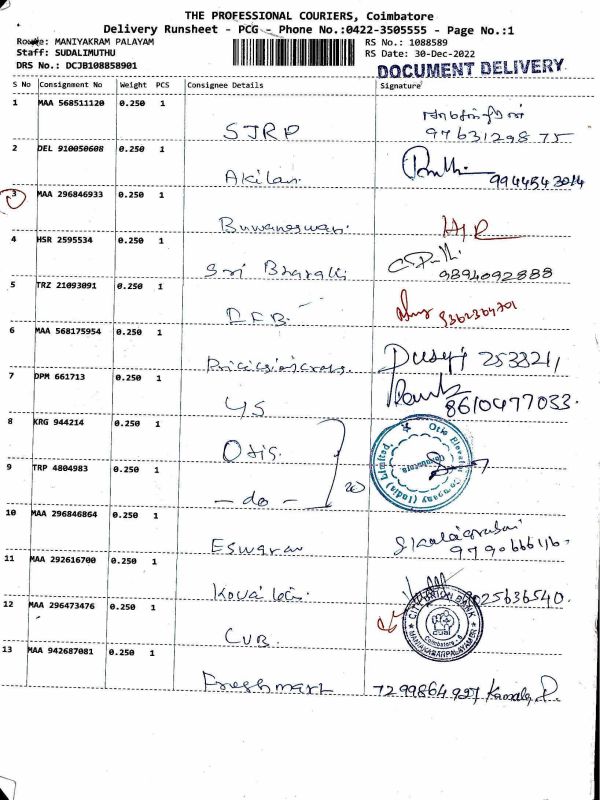 THE PROFESSIONAL COURIERS, Coimbatore
Delivery Runsheet - PCG - Phone No.:0422-3505555 - Page No.:1
Route: MANIYAKRAM PALAYAM RS No.: 1088589
Staff: SUDALIMUTHU RS Date: 30-Dec-2022
DRS No.: DCJB108858901 DOCUMENT DELIVERY
S No Consignment No Weight PCS Consignee Details Signature
1 MAA 568511120 0.250 1
SJRP 9763129875
2 DEL 910050608 0.250 1
Akilan
3 MAA 296846933 0.250 1
Buwaneswari
4 HSR 2595534 0.250 1
Sri Bharathi 9894092888
5 TRZ 21093091 0.250 1
9362364701
6 MAA 568175954 0.250 1
2533211
7 DPM 661713 0.250 1
YS 8610477033.
8 KRG 944214 0.250 1
Otis.
Otis Elevator Company (India) Limited
Coimbatore
9 TRP 4804983 0.250 1
- do -
10 MAA 296846864 0.250 1
Eswaran 9790666116.
11 MAA 292616700 0.250 1
Kovai 9025636540.
12 MAA 296473476 0.250 1
CUB
CITY UNION BANK
CUB
Coimbatore
13 MAA 942687081 0.250 1
Freshmart 7299864927 Kamala P.